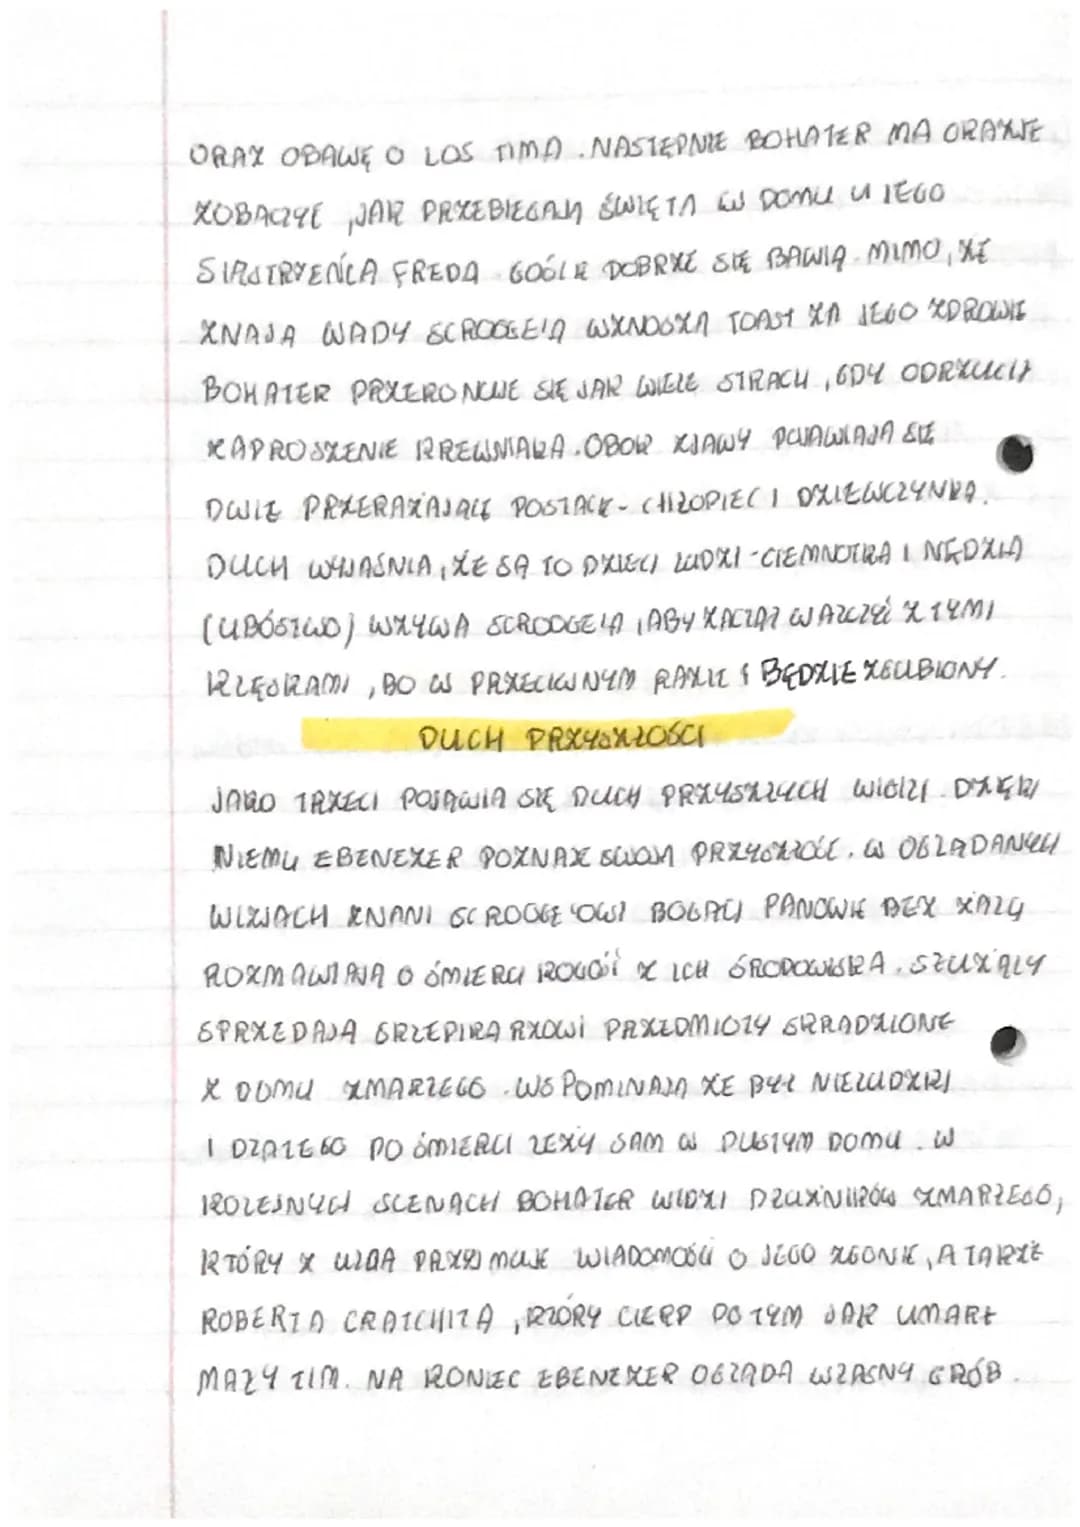 ORAZ OBAWĘ O LOS TIMA. NASTĘPNIE BOHATER MA OKAZJE
ZOBACZYĆ, JAK PRZEBIEGAJĄ ŚWIĘTA W DOMU U JEGO
SIOSTRZEŃCA FREDA. GOŚCIE DOBRZE SIĘ BAWIĄ. MIMO, ŻE
ZNAJĄ WADY SCROOGE'A WZNOSZĄ TOAST ZA JEGO ZDROWIE
BOHATER PRZEKONUJE SIĘ JAK WIELE STRACIŁ, GDY ODRZUCIŁ
ZAPROSZENIE KREWNIAKA. OBOK ZJAWY POJAWIAJĄ SIĘ
DWIE PRZERAŻAJĄCE POSTACIE - CHŁOPIEC I DZIEWCZYNKA.
DUCH WYJAŚNIA, ŻE SĄ TO DZIECI LUDZI - CIEMNOTKA I NĘDZA
(UBÓSTWO) WZYWA SCROOGE'A, ABY ZACZĄŁ WALCZYĆ Z TYMI
KLĘSKAMI, BO W PRZECIWNYM RAZIE BĘDZIE ZGUBIONY.
DUCH PRZYSZŁOŚCI
JAKO TRZECI POJAWIA SIĘ DUCH PRZYSZŁYCH WIGILI. DZIĘKI
NIEMU EBENEZER POZNAJE SWOJĄ PRZYSZŁOŚĆ. W OGLĄDANYCH
WIZJACH ZNANI SCROOGE'OWI BOGACI PANOWIE BEZ ŻALU
ROZMAWIAJĄ O ŚMIERCI KOGOŚ Z ICH ŚRODOWISKA. SŁUŻĄCY
SPRZEDAJĄ SKLEPIKARZOWI PRZEDMIOTY SKRADZIONE
Z DOMU ZMARŁEGO. WSPOMINAJĄ ŻE BYŁ NIELUDZKI
I DLATEGO PO ŚMIERCI LEŻY SAM W PUSTYM DOMU. W
KOLEJNYCH SCENACH BOHATER WIDZI DŁUŻNIKÓW ZMARŁEGO,
KTÓRY Z ULGĄ PRZYJMUJE WIADOMOŚĆ O JEGO ZGONIE, A TAKŻE
ROBERTA CRATCHITA, KTÓRY CIERP PO TYM JAK UMARŁ
MAŁY TIM. NA KONIEC EBENEZER OGLĄDA WŁASNY GRÓB.